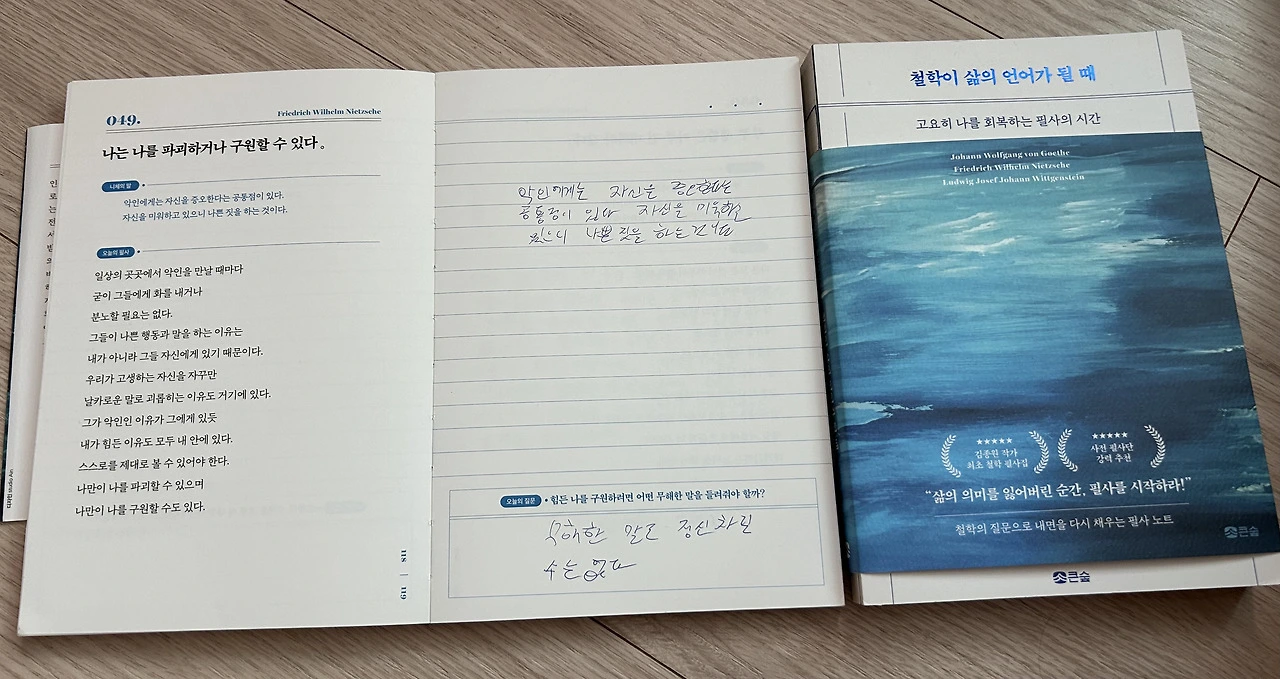 049.
Friedrich Wilhelm Nietzsche
나는 나를 파괴하거나 구원할 수 있다。
니체의 말
악인에게는 자신을 증오한다는 공통점이 있다.
자신을 미워하고 있으니 나쁜 짓을 하는 것이다.
오늘의 필사
일상의 곳곳에서 악인을 만날 때마다
굳이 그들에게 화를 내거나
분노할 필요는 없다.
그들이 나쁜 행동과 말을 하는 이유는
내가 아니라 그들 자신에게 있기 때문이다.
우리가 고생하는 자신을 자꾸만
날카로운 말로 괴롭히는 이유도 거기에 있다.
그가 악인인 이유가 그에게 있듯
내가 힘든 이유도 모두 내 안에 있다.
스스로를 제대로 볼 수 있어야 한다.
나만이 나를 파괴할 수 있으며
나만이 나를 구원할 수도 있다.
118 | 119
악인에게는 자신을 증오한다는
공통점이 있다 자신을 미워하고
있으니 나쁜 짓을 하는
오늘의 질문
힘든 나를 구원하려면 어떤 무해한 말을 들려줘야 할까?
무해한 말로 정신차릴
수는 없다
철학이 삶의 언어가 될 때
고요히 나를 회복하는 필사의 시간
Johann Wolfgang von Goethe
Friedrich Wilhelm Nietzsche
Ludwig Josef Johann Wittgenstein
★★★★★
김종원 작가
최초 철학 필사집
★★★★★
사전 필사단
강력 추천
“삶의 의미를 잃어버린 순간, 필사를 시작하라!”
철학의 질문으로 내면을 다시 채우는 필사 노트
큰숲
큰숲